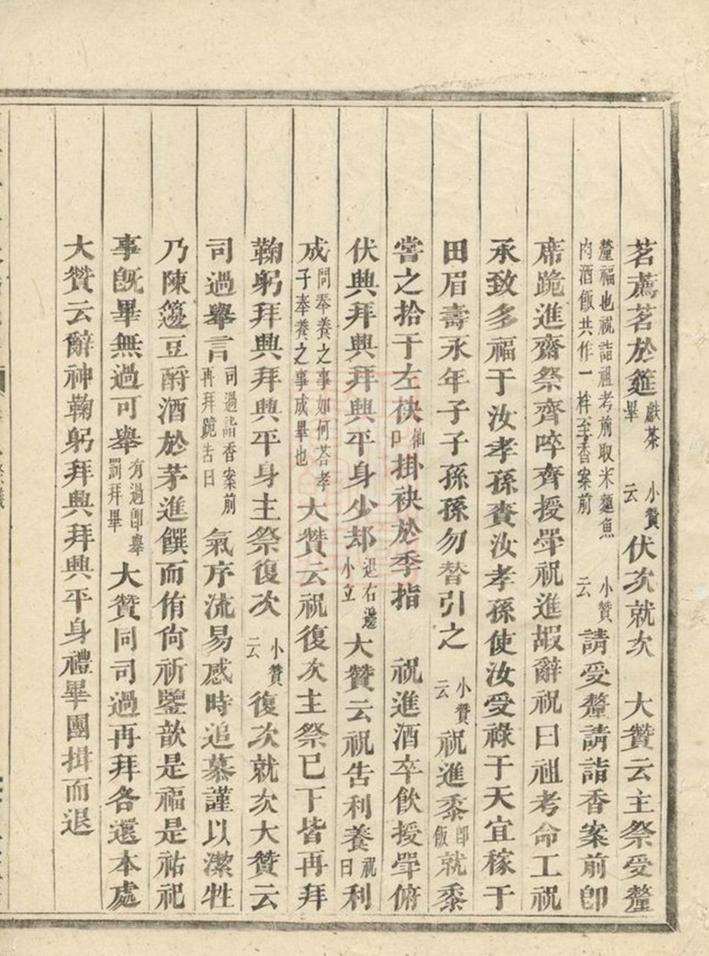 茗薦茗於筵獻茶畢小贊云伏次就次大贊云主祭受釐
釐福也祝詣祖考前取米麵魚肉酒飯共作一柈至香案前小贊云請受釐請詣香案前卽
席跪進齋祭齊啐齊授斝祝進嘏辭祝曰祖考命工祝
承致多福于汝孝孫賚汝孝孫使汝受祿于天宜稼于
田眉壽永年子子孫孫勿替引之小贊云祝進黍卽飯就黍
嘗之拾于左袂袖口掛袂於季指祝進酒卒飲授斝俯
伏興拜興拜興平身少却退右邊小立大贊云祝告利養祝曰利
成問奉養之事如何荅孝子奉養之事成畢也大贊云祝復次主祭已下皆再拜
鞠躬拜興拜興平身主祭復次小贊云復次就次大贊云
司過舉言司過詣香案前再拜跪告曰氣序流易感時追慕謹以潔牲
乃陳籩豆酹酒於茅進饌而侑尙祈鑒歆是福是祐祀
事旣畢無過可舉有過卽舉罰拜畢大贊同司過再拜各還本處
大贊云辭神鞠躬拜興拜興平身禮畢團揖而退